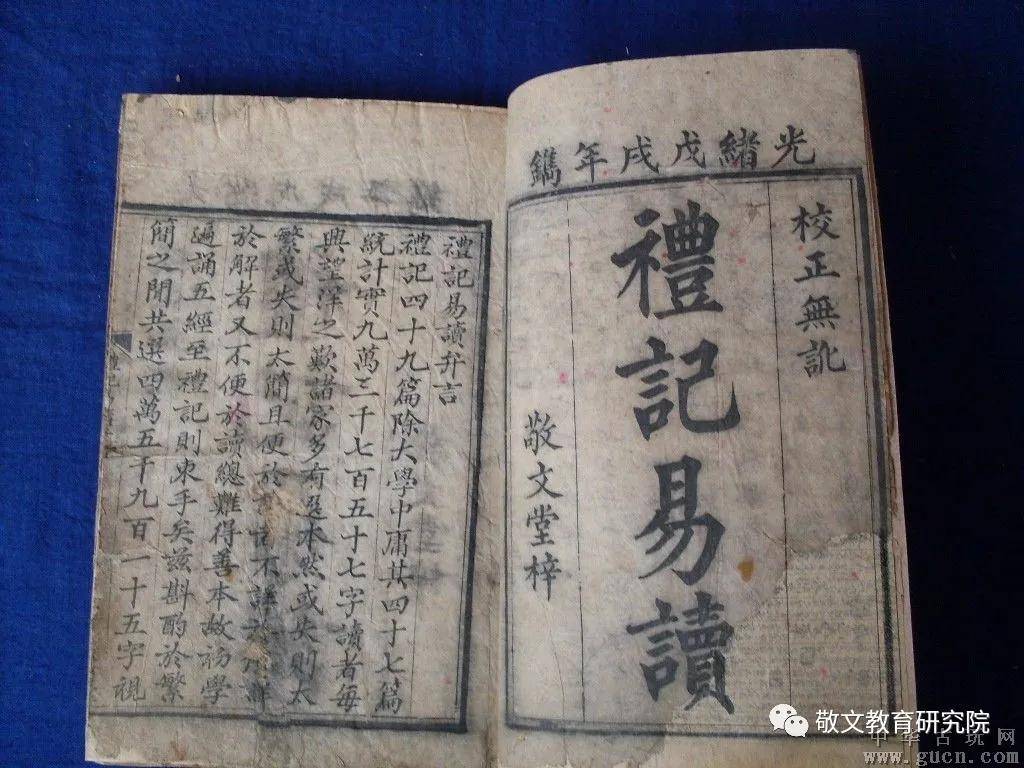 光緒戊戌年鐫
校正無訛
禮記易讀
敬文堂梓
禮記易讀弁言
禮記四十九篇除大學中庸其四十七篇
統計實九萬三千七百五十七字讀者每
興望洋之歎諸家多有選本然或失則太
繁或失則太簡且便於不詳於
於解者又不便於讀總難得善本故初學
遍誦五經至禮記則束手矣茲斟酌於繁
簡之間共選四萬五千九百一十五字視
敬文教育研究院
中华古玩网
www.gucn.com